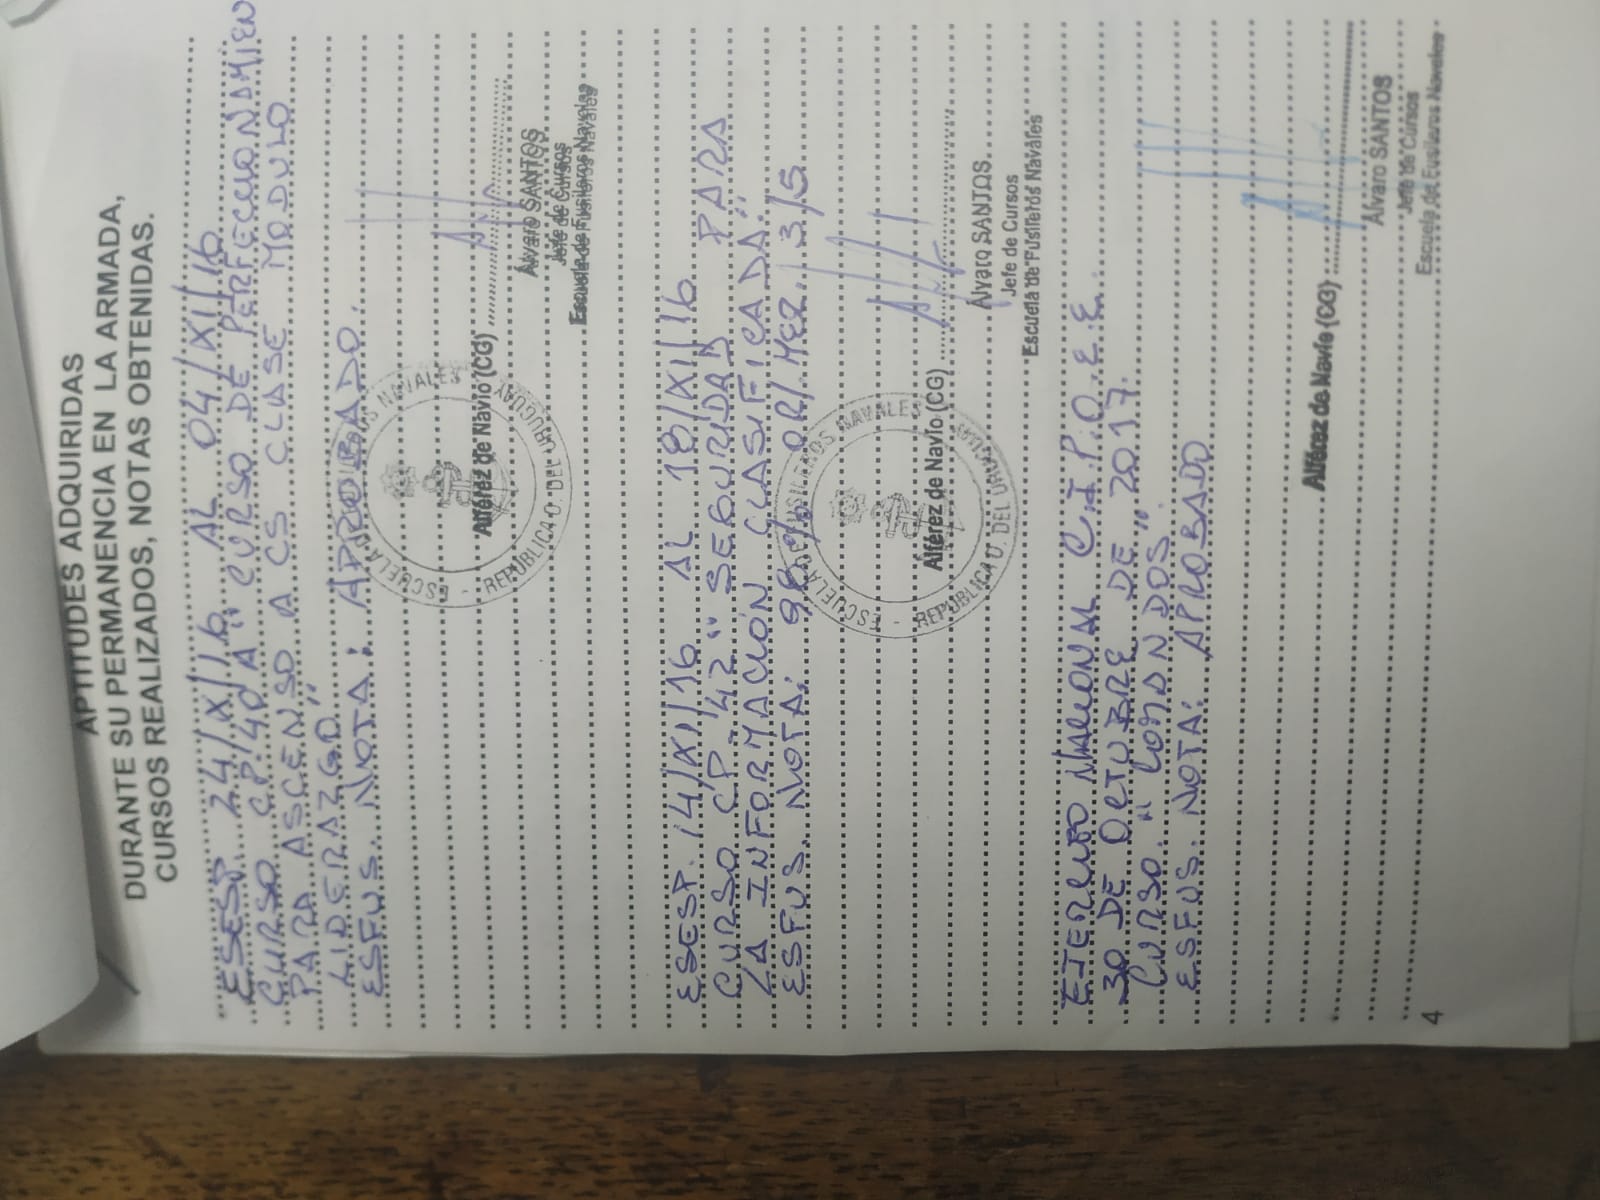 APTITUDES ADQUIRIDAS
DURANTE SU PERMANENCIA EN LA ARMADA,
CURSOS REALIZADOS, NOTAS OBTENIDAS.
ESESP 24/X/16 AL 04/XI/16
CURSO CP-40A "CURSO DE PERFECCIONAMIEN
PARA ASCENSO A CS CLASE MODULO
LIDERAZGO"
ESFUS. NOTA: APROBADO.
ESCUELA DE FUSILEROS NAVALES
REPUBLICA O. DEL URUGUAY
Alférez de Navío (CG)
Álvaro SANTOS
Jefe de Cursos
Escuela de Fusileros Navales
ESESP. 14/XI/16 AL 18/XI/16
CURSO CP-42 "SEGURIDAD PARA
LA INFORMACIÓN CLASIFICADA"
ESFUS. NOTA: 98% OR/MER. 3/5
ESCUELA DE FUSILEROS NAVALES
REPUBLICA O. DEL URUGUAY
Alférez de Navío (CG)
Álvaro SANTOS
Jefe de Cursos
Escuela de Fusileros Navales
EJERCITO NACIONAL C.I.P.O.E.E.
30 DE OCTUBRE DE 2017.
CURSO "COMANDOS"
ESFUS. NOTA: APROBADO
Alférez de Navío (CG)
Álvaro SANTOS
Jefe de Cursos
Escuela de Fusileros Navales
4